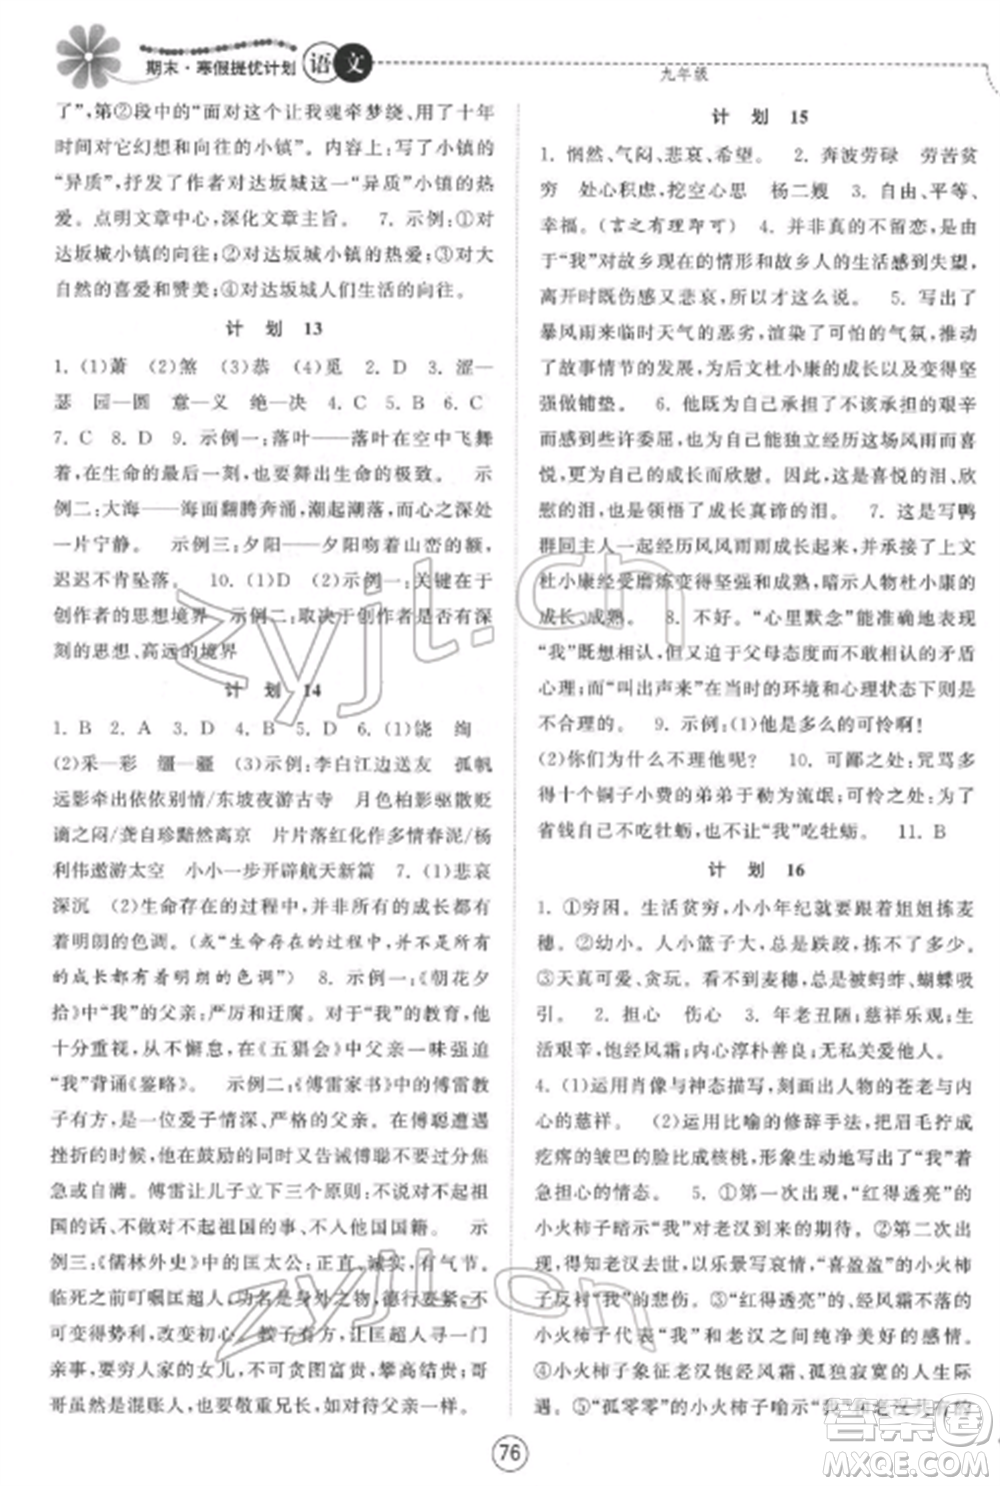 期末·寒假提优计划 语文
九年级
了”，第②段中的“面对这个让我魂牵梦绕、用了十年
时间对它幻想和向往的小镇”。内容上：写了小镇的
“异质”，抒发了作者对达坂城这一“异质”小镇的热
爱。点明文章中心，深化文章主旨。 7. 示例：①对
达坂城小镇的向往；②对达坂城小镇的热爱；③对大
自然的喜爱和赞美；④对达坂城人们生活的向往。
计 划 13
1. (1)萧 (2)煞 (3)恭 (4)觅 2. D 3. 涩—
瑟 园—圆 意—义 绝—决 4. C 5. B 6. C
7. C 8. D 9. 示例一：落叶——落叶在空中飞舞
着，在落地的最后一刻，也要舞出生命的极致。 示
例二：大海——海面翻腾奔涌，潮起潮落，而心之深处
一片宁静。 示例三：夕阳——夕阳吻着山峦的额，
迟迟不肯坠落。 10. (1)D (2)示例一：关键在于
创作者的思想境界 示例二：取决于创作者是否有深
刻的思想、高远的境界
计 划 14
1. B 2. A 3. D 4. B 5. D 6. (1)饶 绚
(2)采—彩 缰—疆 (3)示例：李白江边送友 孤帆
远影牵出依依别情/东坡夜游古寺 月色柏影驱散贬
谪之闷/龚自珍黯然离京 片片落红化作多情春泥/杨
利伟遨游太空 小小一步开辟航天新篇 7. (1)悲哀
深沉 (2)生命存在的过程，经历的成长过程都应存
有着明朗的色调。（或“生命存在的本身，以及经历过
的成长都有着明朗的色调”） 8. 示例一：《朝花夕
拾》中“我”的父亲：严厉和古板。对“我”的教育，他
十分重视，从不懈怠，在《五猖会》中父亲一味强迫
“我”背诵《鉴略》。 示例二：《傅雷家书》中傅雷教
子有方，是一位爱子情深、严格的父亲，在傅聪遭遇
挫折的时候，他在鼓励安慰的同时又告诫傅聪不能焦
急或自满。傅雷让儿子立下三个原则：不说对不起祖
国的话、不做对不起祖国的事、不入他国国籍。 示
例三：《儒林外史》中的匡太公：正直、诚实，有气节。
临死之时叮嘱匡超人，功名是身外之物，德行最要紧，
不可变得势利，不可骄傲，教子有方；让匡超人早完
亲事，要穷人家的女儿，不可贪图富贵，攀高结贵；哥
哥虽然是混账人，父母但要敬重兄长，和奉事父亲一样。
76
计 划 15
1. 惘然、气闷、悲哀、希望。 2. 奔波劳碌 劳苦贫
穷 处心积虑，挖空心思 杨二嫂 3. 自由、平等、
幸福。（言之有理即可） 4. 并非真的不留恋，而是
因为“我”对故乡现在的情形和故乡人的生活感到失望，
离开时既伤感又悲哀，更加坚定了走的决心。 5. 写出了
暴风雨来临时天气的恶劣，渲染了可怕的气氛，推动
了故事情节的发展，为下文杜小康的成长以及变得
坚强做铺垫。 6. 他为自己承担了不该承担的艰辛
而感到些许委屈，又为自己能独立经历风雨而喜
悦，更因为自己的成长而欣慰。因此，这是喜悦的泪、欣
慰的泪，也是领悟了成长真谛的泪。 7. 这句写鸭
群同主人一起经历风风雨雨后成长起来，照应了上文
杜小康经受磨炼后变得坚强和成熟，暗示人物杜小康的
成长、成熟。 8. 不好。“心里默念”能准确地表现
“我”当时受到父母态度影响而不敢叫出声的矛盾
心理；而“叫出声来”与当时的环境和心理状态不符，是
不合理的。 9. 示例：(1)他是多么的可怜啊！
(2)你为什么不理他呢？ 10. 可鄙之处：咒骂多
得十个铜子小费的弟弟于勒为流氓；可怜之处：为了
省钱全家自己不吃牡蛎，也不让“我”吃牡蛎。 11. B
计 划 16
1. ①穷困。生活贫穷，小小年纪就要跟着姐姐拣麦
穗。②幼小。人小篮子大，总是跌跤，拣不了多少。
③天真可爱、贪玩。看不到麦穗，总是被蚂蚱、蝴蝶吸
引。 2. 担心 伤心 3. 年老丑陋；慈祥乐观；生活
艰辛，饱经风霜；内心淳朴善良；无私关爱他人。
4. (1)运用肖像与神态描写，刻画出人物的苍老与内
心的慈祥。 (2)运用比喻的修辞手法，把眉毛拧成
疙瘩的皱巴的脸比成核桃，形象生动地写出了“我”的着
急担心的情态。 5. ①第一次出现，“红得透亮”的
小火柿子暗示“我”对老汉到来的期待。②第二次出
现，小火柿子依然红得透亮，“喜盈盈”的小火柿
子反衬“我”的悲伤。③“红得透亮”、经风霜不落的
小火柿子代表“我”和老汉之间纯净美好的感情。
④小火柿子象征着老汉饱经风霜、孤独寂寞的人生际
遇。⑤“孤零零”的小火柿子喻示“我”
zyjl.cn
zyjl.cn
答案圈
MXQE.COM